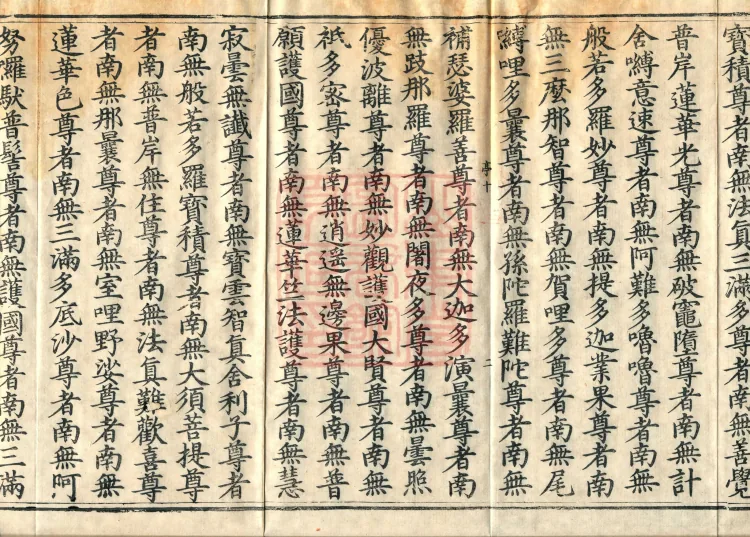 寶積尊者南無法真三滿多尊者南無善覺
普岸蓮華光尊者南無破竈墮尊者南無計
舍嚩意速尊者南無阿難多嚕嚕尊者南無
般若多羅妙尊者南無提多迦業果尊者南
無三麼那智尊者南無賀哩多尊者南無尾
嚩哩多曩尊者南無孫陀羅難陀尊者南無
補瑟婆羅善尊者南無大迦多演曩尊者南
亭十
二
無跂那羅尊者南無闍夜多尊者南無曇照
優波離尊者南無妙觀護國大賢尊者南無
祇多密尊者南無逍遥無邊果尊者南無普
願護國尊者南無蓮華竺法護尊者南無慧
寂曇無讖尊者南無寶雲智真舍利子尊者
南無般若多羅寶積尊者南無大須菩提尊
者南無普岸無住尊者南無法真難歡喜尊
者南無那曩尊者南無室哩野娑尊者南無
蓮華色尊者南無三滿多底沙尊者南無阿
努羅馱普髻尊者南無護國尊者南無三滿